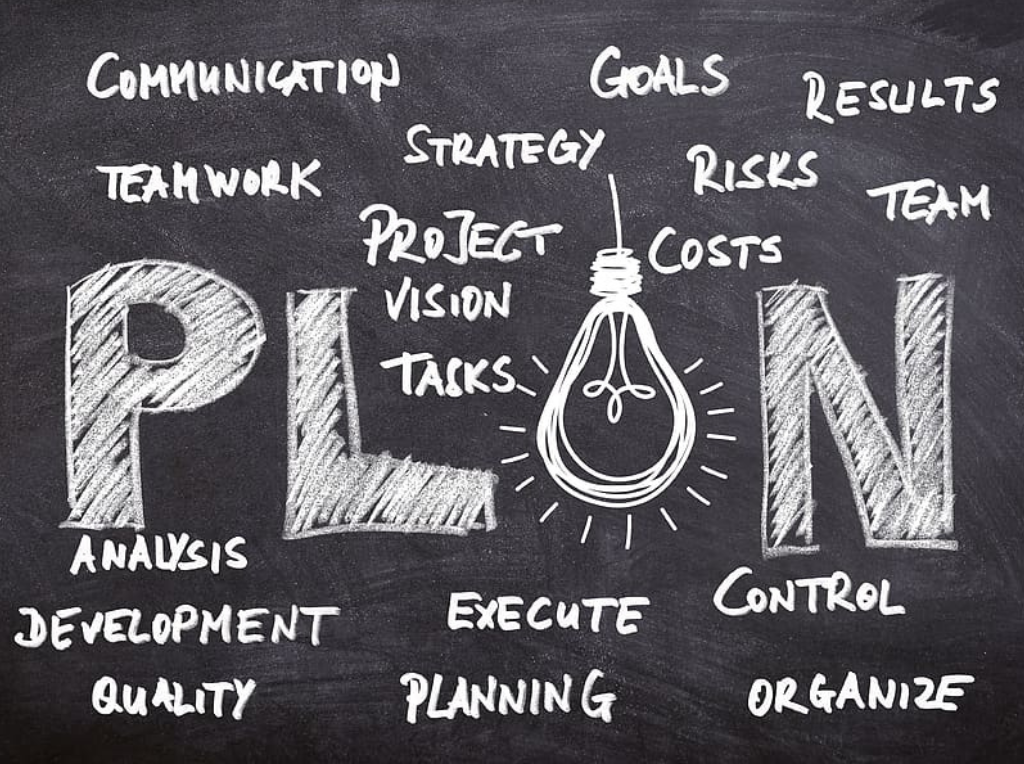 COMMUNICATION
GOALS
RESULTS
STRATEGY
TEAMWORK
RISKS
TEAM
PROJECT
COSTS
VISION
TASKS
PL N
ANALYSIS
DEVELOPMENT
EXECUTE
CONTROL
QUALITY
PLANNING
ORGANIZE